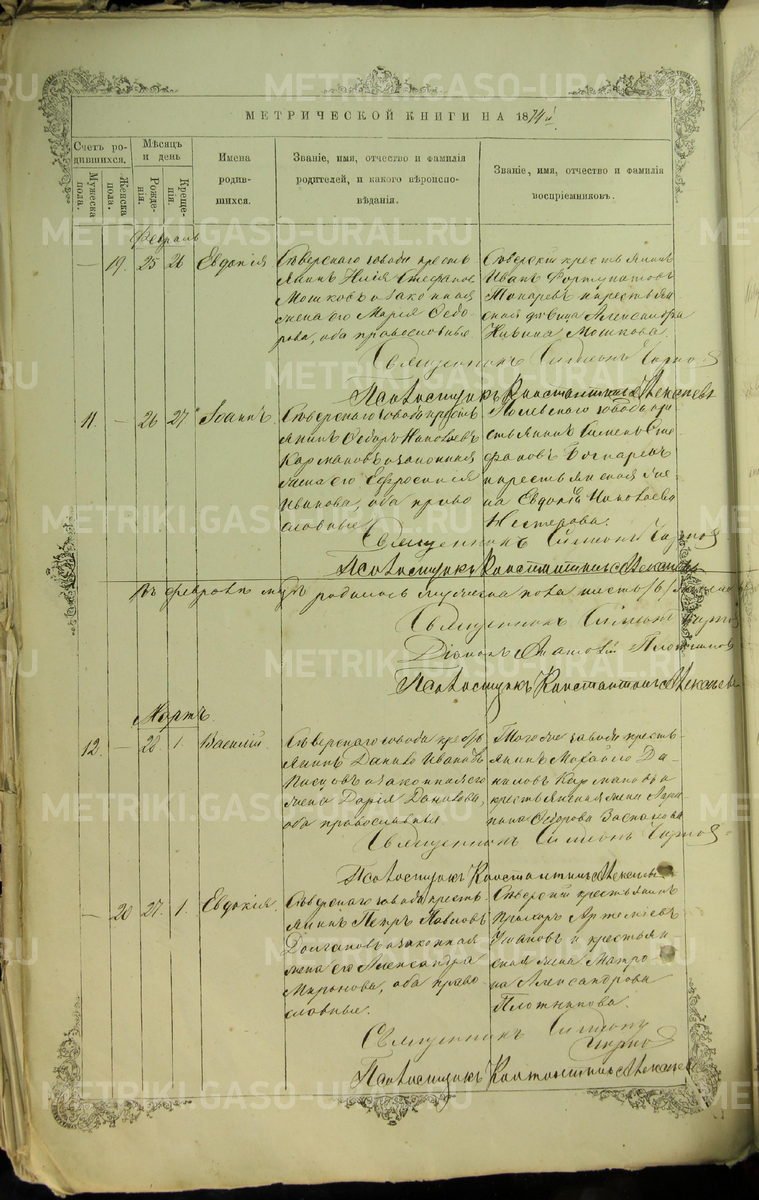 МЕТРИЧЕСКОЙ КНИГИ НА 1874й
Счетъ родившихся.
Мужеска пола.
Женска пола.
Мѣсяцъ и день
Рожденія.
Крещенія.
Имена родившихся.
Званіе, имя, отчество и фамилія родителей, и какого вѣроисповѣданія.
Званіе, имя, отчество и фамилія воспріемниковъ.
Февраль
— 19. 25 26 Евдокія
Сѣверскаго завода кресть
янинъ Илія Стефановъ
Мошковъ и законная
жена его Марія Ѳедо
рова, оба православные
Сѣверскій крестьянинъ
Иванъ Фортунатовъ
Токаревъ и крестьян
ская дѣвица Александра
Мошкова.
Священникъ Симеонъ
Псаломщикъ Константинъ Алексѣевъ
11. — 26 27 Іоаннъ
Сѣверскаго завода кресть
янинъ Ѳедоръ
Кармановъ и законная
жена его Ефросинія
Иванова, оба право
славные
Полевскаго завода кре
стьянинъ Симеонъ Сте
фановъ
и крестьянская же
на Евдокія
Нестерова.
Священникъ Симеонъ
Псаломщикъ Константинъ Алексѣевъ
Въ февралѣ родилось мужеска пола шесть /6/
Священникъ Симеонъ
Діаконъ Плотниковъ
Псаломщикъ Константинъ Алексѣевъ
Мартъ
12. — 28 1. Василій
Сѣверскаго завода кресть
янинъ Данило Ивановъ
и законная его
жена Дарія Данилова,
оба православные
Тогоже завода кресть
янинъ Михайло Да
ниловъ Кармановъ и
крестьянская жена
Ѳедорова
Священникъ Симеонъ
Псаломщикъ Константинъ Алексѣевъ
— 20 27. 1. Евдокія.
Сѣверскаго завода кресть
янинъ Петръ Павловъ
Долгановъ и законная
жена его Александра
Миронова, оба право
славные.
Сѣверскій крестьянинъ
Прохоръ Артеміевъ
и крестьян
ская жена Матро
на Александрова
Плотникова.
Священникъ Симеонъ
Псаломщикъ Константинъ Алексѣевъ
METRIKI.GASO-URAL.RU